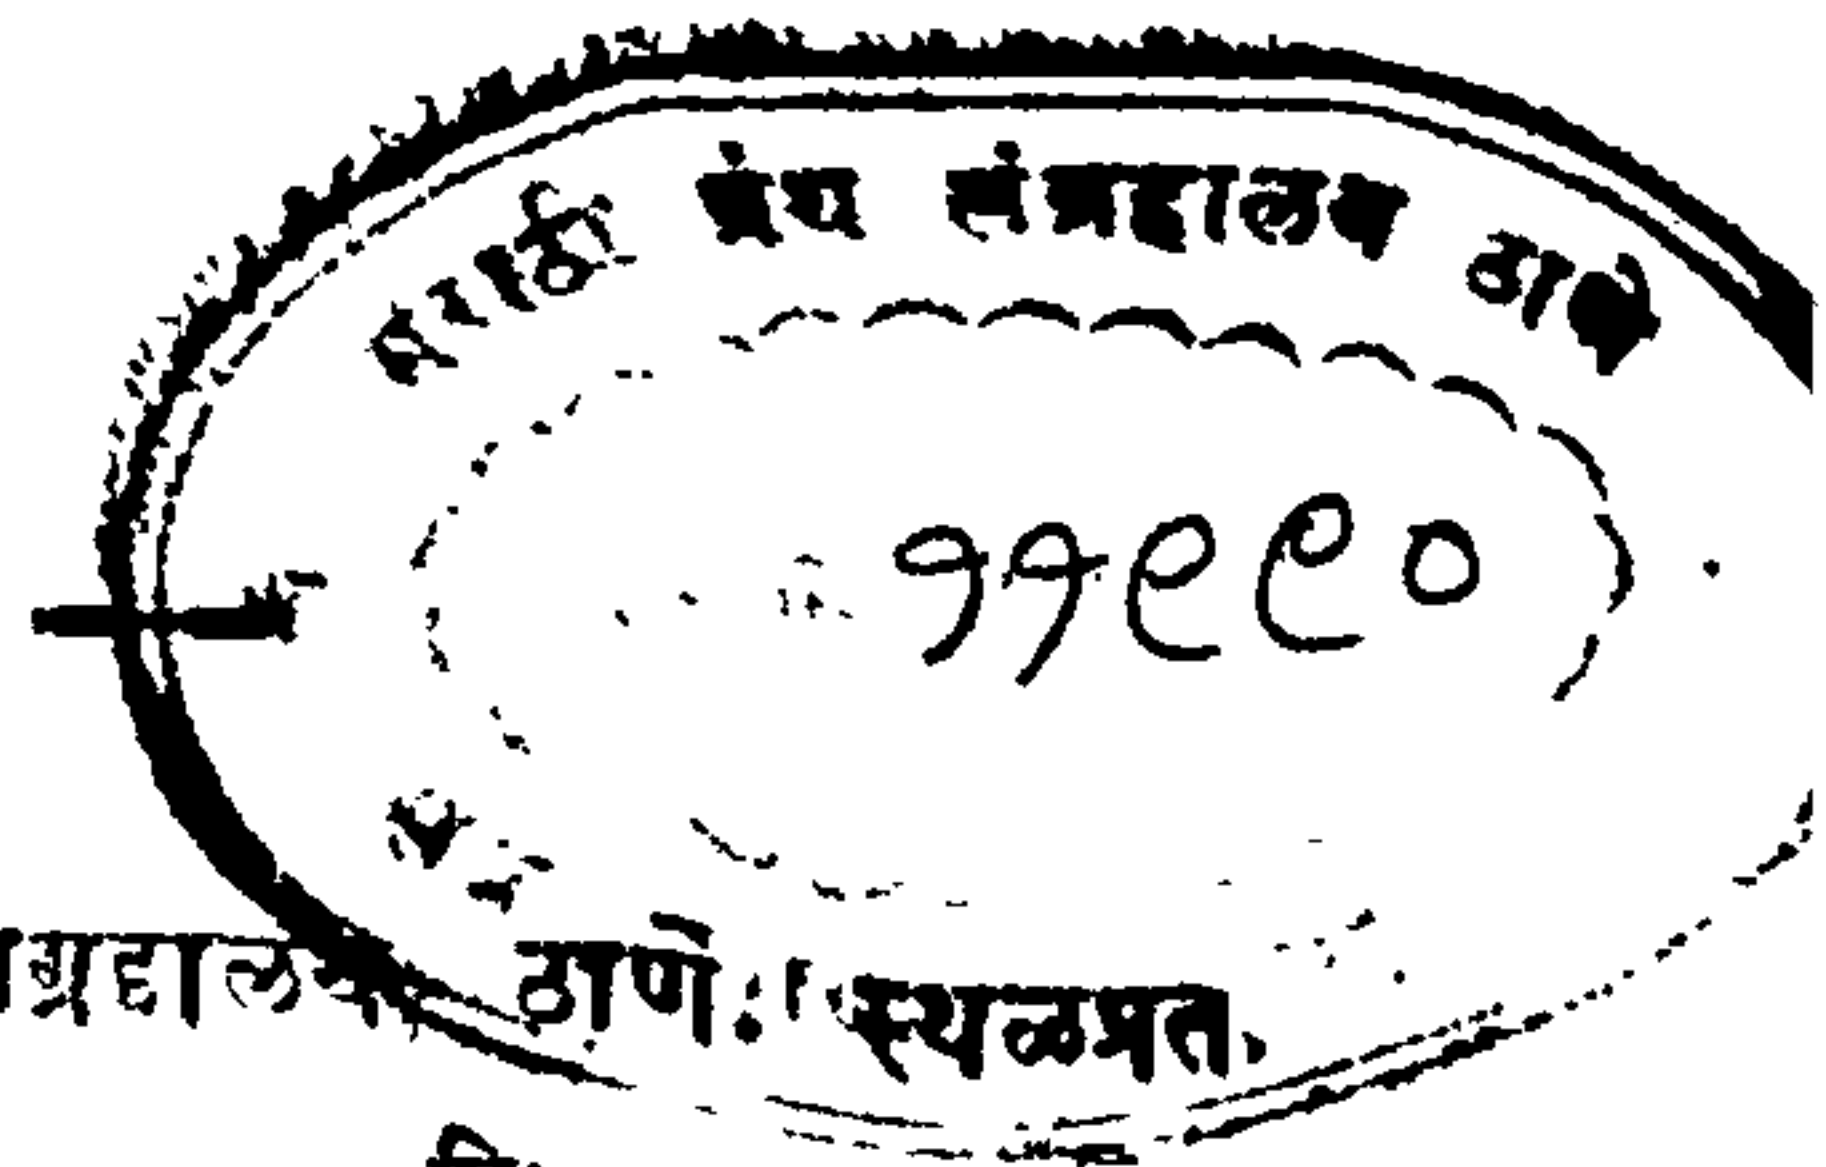 मराठी ग्रंथ संग्रहालय ठाणे
११९९०
ग्रहालय ठाणे. स्थळप्रत.